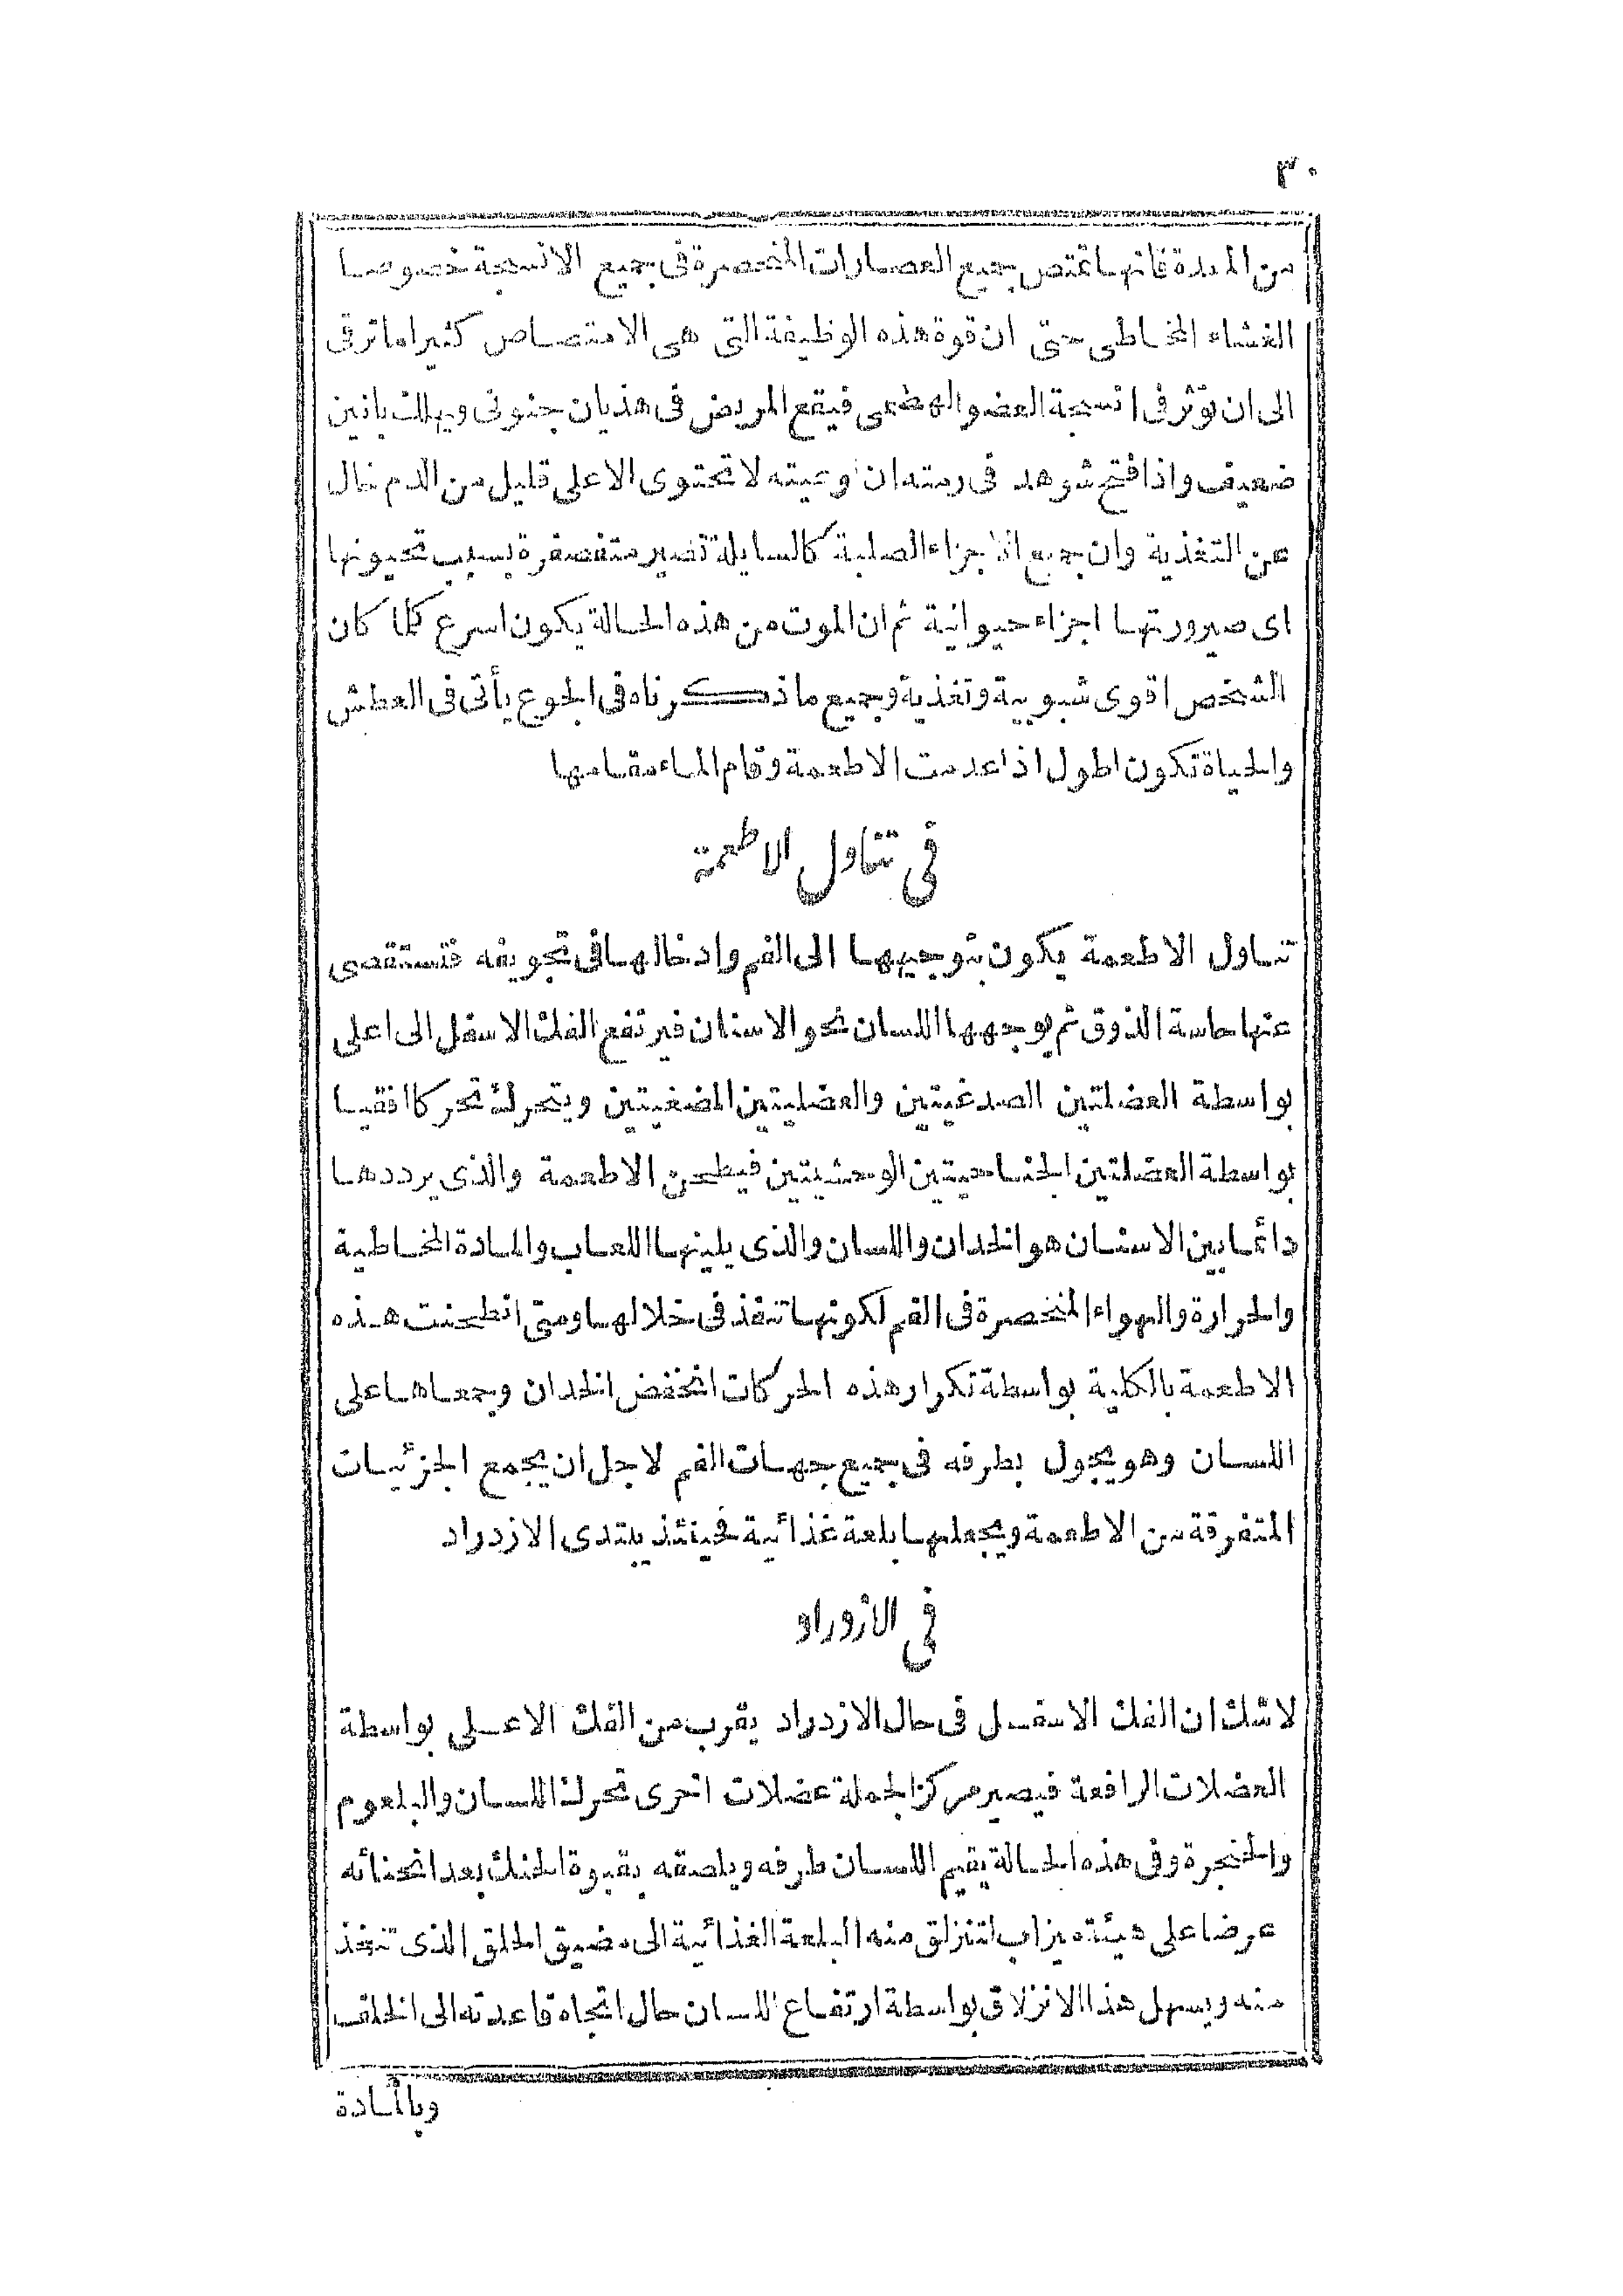 ٣٠
من المعدة فانها تمتص جميع العصارات المنحصرة فى جميع الانسجة خصوصا
الغشاء المخاطى حتى ان قوة هذه الوظيفة التى هى الامتصاص كثيرا ما ترقى
الى ان تؤثر فى انسجة العضو الهضمى فيقع المريض فى هذيان جنونى ويهلك بانين
ضعيف واذا فتح شوهد فى رمته ان اوعيته لا تحتوى الا على قليل من الدم خال
عن التغذية وان جميع الاجزاء الصلبة كالسايلة تصير متعصفرة بسبب تحيونها
اى صيرورتها اجزاء حيوانية ثم ان الموت من هذه الحالة يكون اسرع كلما كان
الشخص اقوى شبوبية وتغذية وجميع ما ذكرناه فى الجوع يأتى فى العطش
والحياة تكون اطول اذا عدمت الاطعمة وقام الماء مقامها
فى تناول الاطعمة
تناول الاطعمة يكون بتوجيهها الى الفم وادخالها فى تجويفه فتستقصى
عنها حاسة الذوق ثم يوجهها اللسان نحو الاسنان فيرتفع الفك الاسفل الى اعلى
بواسطة العضلتين الصدغيتين والعضليتين المضغيتين ويتحرك تحركا افقيا
بواسطة العضلتين الجناحيتين الوحشيتين فيطحن الاطعمة والذى يرددها
دائما بين الاسنان هو الخدان واللسان والذى يلينها اللعاب والمادة المخاطية
والحرارة والهواء المنحصرة فى الفم لكونها تنفذ فى خلالها ومتى انطحنت هذه
الاطعمة بالكلية بواسطة تكرار هذه الحركات انخفض الخدان وجمعاها على
اللسان وهو يجول بطرفه فى جميع جهات الفم لاجل ان يجمع الجزئيات
المتفرقة من الاطعمة ويجعلها بلعة غذائية فحينئذ يبتدى الازدراد
فى الازدراد
لا شك ان الفك الاسفل فى حال الازدراد يقرب من الفك الاعلى بواسطة
العضلات الرافعة فيصير مركزا لجملة عضلات اخرى تحرك اللسان والبلعوم
والحنجرة وفى هذه الحالة يقيم اللسان طرفه ويلصقه بقبوة الحنك بعد انحنائه
عرضا على هيئة ميزاب لتنزلق منه البلعة الغذائية الى مضيق الحلق الذى تنفذ
منه ويسهل هذا الانزلاق بواسطة ارتفاع اللسان حال اتجاه قاعدته الى الخلف
وبالمادة